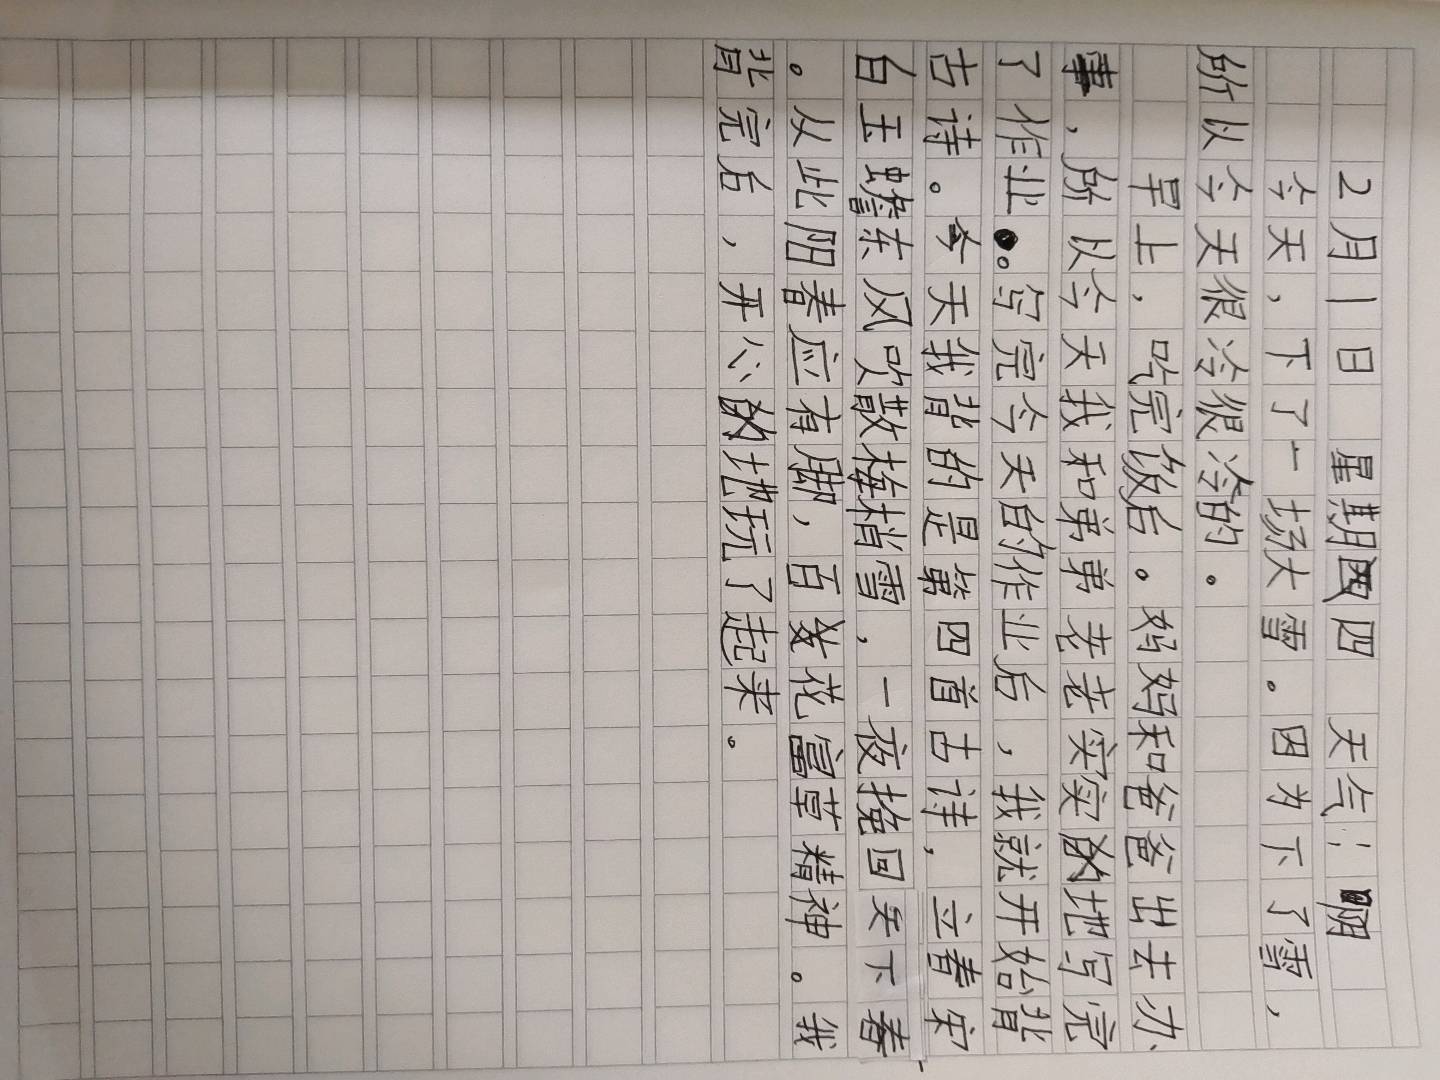 2月1日 星期四 天气:阴
今天,下了一场大雪。因为下了雪,
所以今天很冷很冷的。
早上,吃完饭后。妈妈和爸爸出去办
事,所以今天我和弟弟老老实实的地写完
了作业。写完今天的作业后,我就开始背
古诗。今天我背的是第四首古诗,立春宋
白玉蟾东风吹散梅梢雪,一夜挽回天下春
。从此阳春应有脚,百花富草精神。我
背完后,开心的地玩了起来。